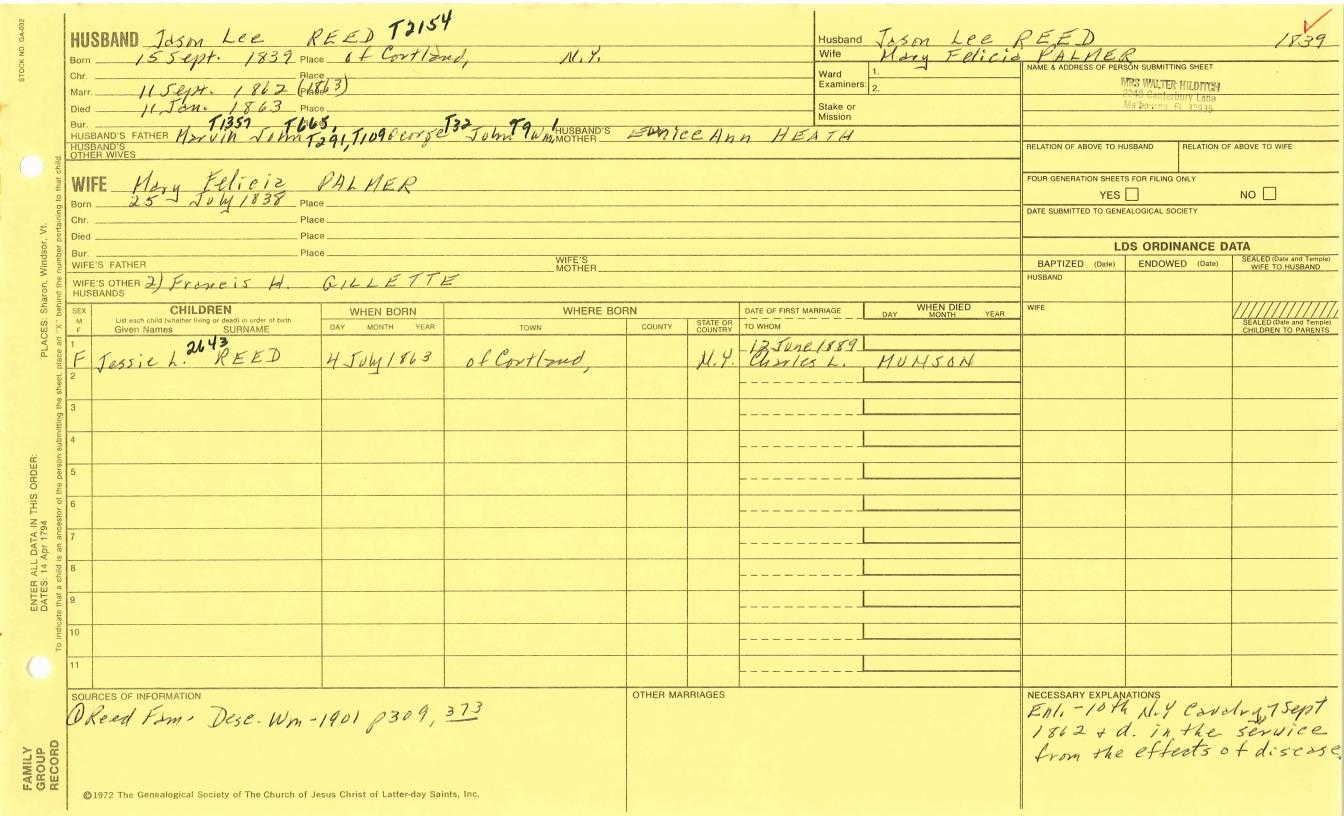 STOCK NO. GA-032
HUSBAND Jason Lee REED T2154
Born 15 Sept. 1839 Place of Cortland, N.Y.
Chr. Place
Marr. 11 Sept. 1862 (1863) Place
Died 11 Jan. 1863 Place
Bur. Place
T1357 T665, T32 T9 1
HUSBAND'S FATHER Marvin John T291, T109 George John Wm HUSBAND'S MOTHER Eunice Ann HEATH
HUSBAND'S OTHER WIVES
WIFE Mary Felicia PALMER
Born 25 July 1838 Place
Chr. Place
Died Place
Bur. Place
WIFE'S FATHER WIFE'S MOTHER
WIFE'S OTHER HUSBANDS 2) Francis H. GILLETTE
Husband Jason Lee REED 1839
Wife Mary Felicia PALMER
Ward Examiners: 1.
2.
Stake or Mission
NAME & ADDRESS OF PERSON SUBMITTING SHEET
MRS WALTER HILDITCH
Canterbury Lane
RELATION OF ABOVE TO HUSBAND RELATION OF ABOVE TO WIFE
FOUR GENERATION SHEETS FOR FILING ONLY
YES NO
DATE SUBMITTED TO GENEALOGICAL SOCIETY
LDS ORDINANCE DATA
BAPTIZED (Date) ENDOWED (Date) SEALED (Date and Temple) WIFE TO HUSBAND
HUSBAND
WIFE
SEALED (Date and Temple) CHILDREN TO PARENTS
SEX M F
CHILDREN
List each child (whether living or dead) in order of birth
Given Names SURNAME
WHEN BORN
DAY MONTH YEAR
WHERE BORN
TOWN COUNTY STATE OR COUNTRY
DATE OF FIRST MARRIAGE
TO WHOM
WHEN DIED
DAY MONTH YEAR
1 2643 12 June 1889
F Jessie L. REED 4 July 1863 of Cortland, N.Y. Charles L. MUNSON
2
3
4
5
6
7
8
9
10
11
SOURCES OF INFORMATION
① Reed Fam. Desc. Wm - 1901 p309, 373
OTHER MARRIAGES
NECESSARY EXPLANATIONS
Enl. - 10th N.Y Cavalry 7 Sept
1862 + d. in the service
from the effects of disease
©1972 The Genealogical Society of The Church of Jesus Christ of Latter-day Saints, Inc.
FAMILY GROUP RECORD
ENTER ALL DATA IN THIS ORDER:
DATES: 14 Apr 1794
PLACES: Sharon, Windsor, Vt.
To indicate that a child is an ancestor of the person submitting the sheet, place an "X" behind the number pertaining to that child.